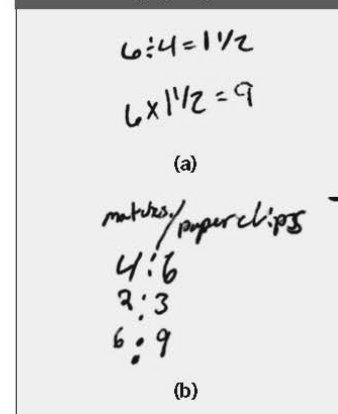 6÷4=1 1/2
6×1 1/2=9
(a)
matches/paperclips
4:6
2:3
6:9
(b)